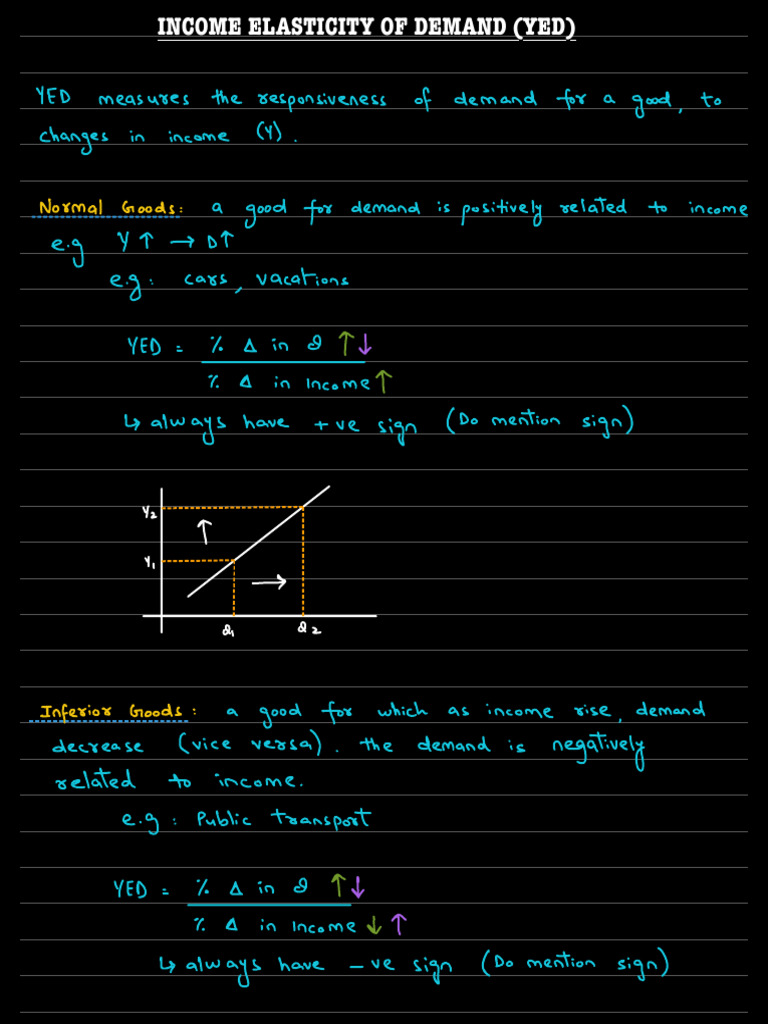 INCOME ELASTICITY OF DEMAND (YED)
YED measures the responsiveness of demand for a good, to
changes in income (Y).
Normal Goods: a good for demand is positively related to income
e.g Y ↑ → D↑
e.g: cars, vacations
YED = % Δ in Q ↑↓
% Δ in Income ↑
↳ always have +ve sign (Do mention sign)
Y2
Y1
Q1 Q2
Inferior Goods: a good for which as income rise, demand
decrease (vice versa). the demand is negatively
related to income.
e.g: Public transport
YED = % Δ in Q ↑↓
% Δ in Income ↓↑
↳ always have -ve sign (Do mention sign)